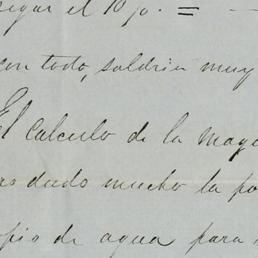 egar el 10 p%. = —
con todo, saldria muy
El calculo de la maqu
as dudo mucho la po
opio de agua para